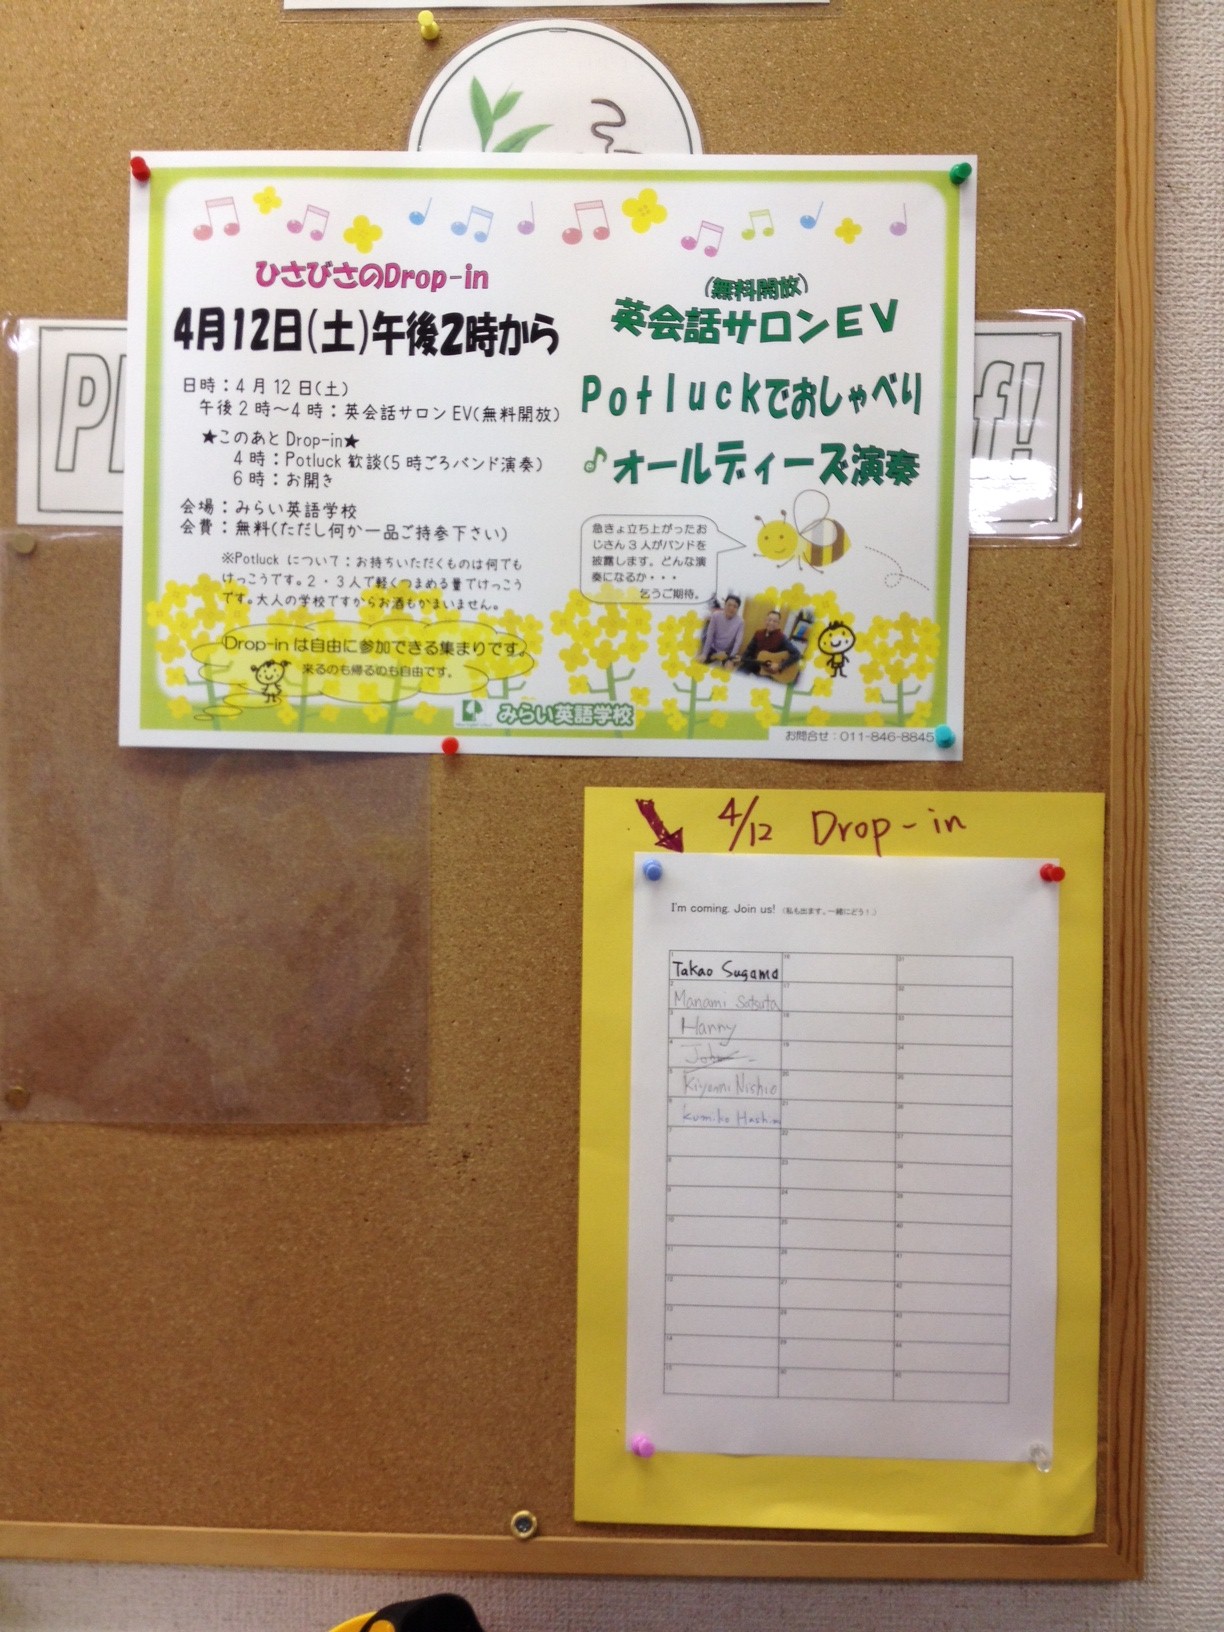 ひさびさのDrop-in
4月12日(土)午後2時から
日時：4月12日(土)
午後2時～4時：英会話サロンEV(無料開放)
★このあとDrop-in★
4時：Potluck歓談(5時ごろバンド演奏)
6時：お開き
会場：みらい英語学校
会費：無料(ただし何か一品ご持参下さい)
※Potluckについて：お持ちいただくものは何でも
けっこうです。2・3人で軽くつまめる量でけっこう
です。大人の学校ですからお酒もかまいません。
Drop-inは自由に参加できる集まりです。
来るのも帰るのも自由です。
(無料開放)
英会話サロンEV
Potluckでおしゃべり
オールディーズ演奏
急きょ立ち上がったお
じさん3人がバンドを
披露します。どんな演
奏になるか・・・
乞うご期待。
みらい英語学校
お問合せ：011-846-8845
4/12 Drop-in
I'm coming. Join us! (私も出ます。一緒にどう！)
Takao Sugama
Manami Satsuta
Hanny
John
Kiyomi Nishio
Kumiko Hashim